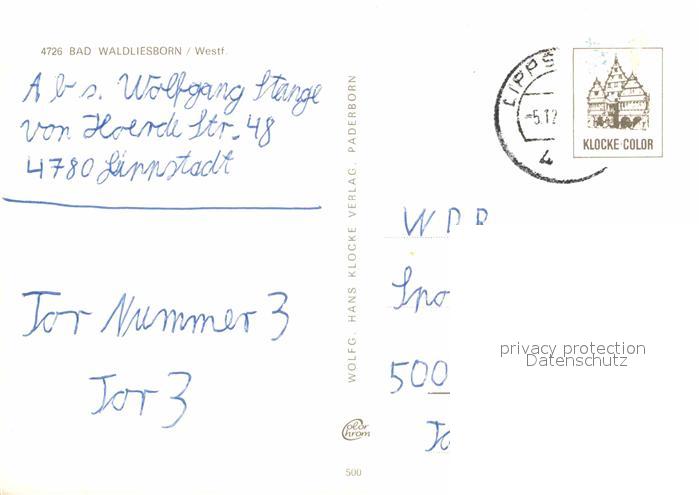 4726 BAD WALDLIESBORN / Westf.
Abs. Wolfgang Stange
von Hoerde Str. 48
4780 Lippstadt
Tor Nummer 3
Tor 3
WOLFG. HANS KLOCKE VERLAG, PADERBORN
Color
chrom
500
LIPPS
-5.12
4
KLOCKE-COLOR
W D R
Spo
500
To
privacy protection
Datenschutz